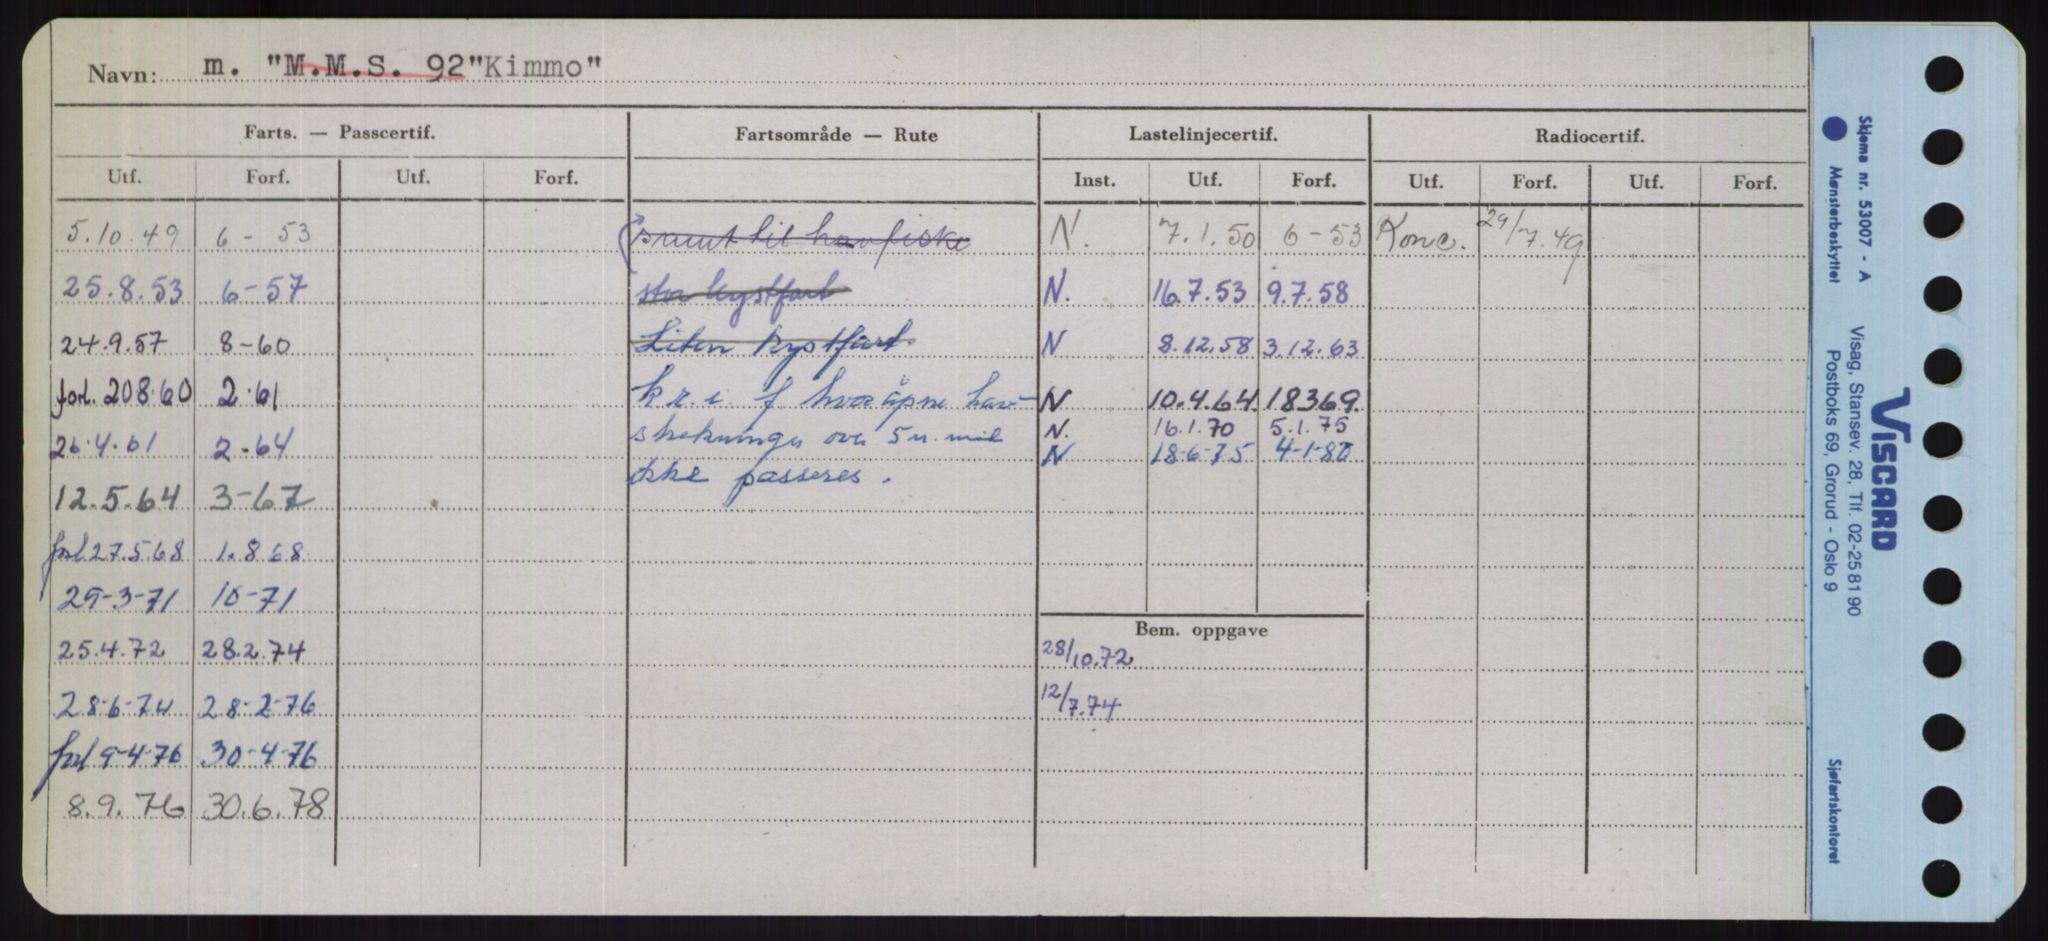 Navn: m. "M.M.S. 92"Kimmo"
Farts. — Passcertif. Fartsområde — Rute Lastelinjecertif. Radiocertif.
Utf. Forf. Utf. Forf. Inst. Utf. Forf. Utf. Forf. Utf. Forf.
5.10.49 6 - 53 samt til havfiske N. 7.1.50 6-53 Konc. 29/7.49
25.8.53 6-57 stor kystfart N. 16.7.53 9.7.58
24.9.57 8-60 Liten kystfart. N 8.12.58 3.12.63
forl. 208.60 2.61 k r. i. f hvor åpne hav- N 10.4.64 18369
26.4.61 2-64 strekninger over 5 n. mil N. 16.1.70 5.1.75
N 18-6-75 4-1-80
12.5.64 3-67 ikke passeres.
forl 27.568 1.868
29-3-71 10-71
Bem. oppgave
25.4.72 28.2.74 28/10.72
28-6-74 28-2-76 12/7.74
forl 9-4-76 30-4-76
8.9.76 30.6.78
Skjema nr. 53007 - A
Mønsterbeskyttet
Visag, Stansev. 28, Tlf. 02-25 81 90
Postboks 69, Grorud - Oslo 9
VISCARD
Sjøfartskontoret